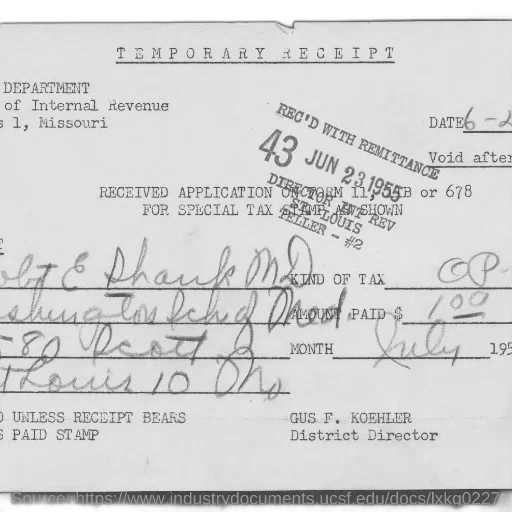 TEMPORARY RECEIPT
DEPARTMENT
of Internal Revenue
s 1, Missouri
DATE 6-2
REC'D WITH REMITTANCE
43 JUN 23 1955
DIRECTOR INT REV
ST. LOUIS
TELLER - #2
Void after
RECEIVED APPLICATION ON FORM 11, 11B or 678
FOR SPECIAL TAX STAMP AS SHOWN
obt E Shank MD
KIND OF TAX OP-
shington Schd Med.
AMOUNT PAID $ 1 00
580 Scott
MONTH July 195
t Louis 10 Mo
D UNLESS RECEIPT BEARS
S PAID STAMP
GUS F. KOEHLER
District Director
Source: https://www.industrydocuments.ucsf.edu/docs/lxkg0227